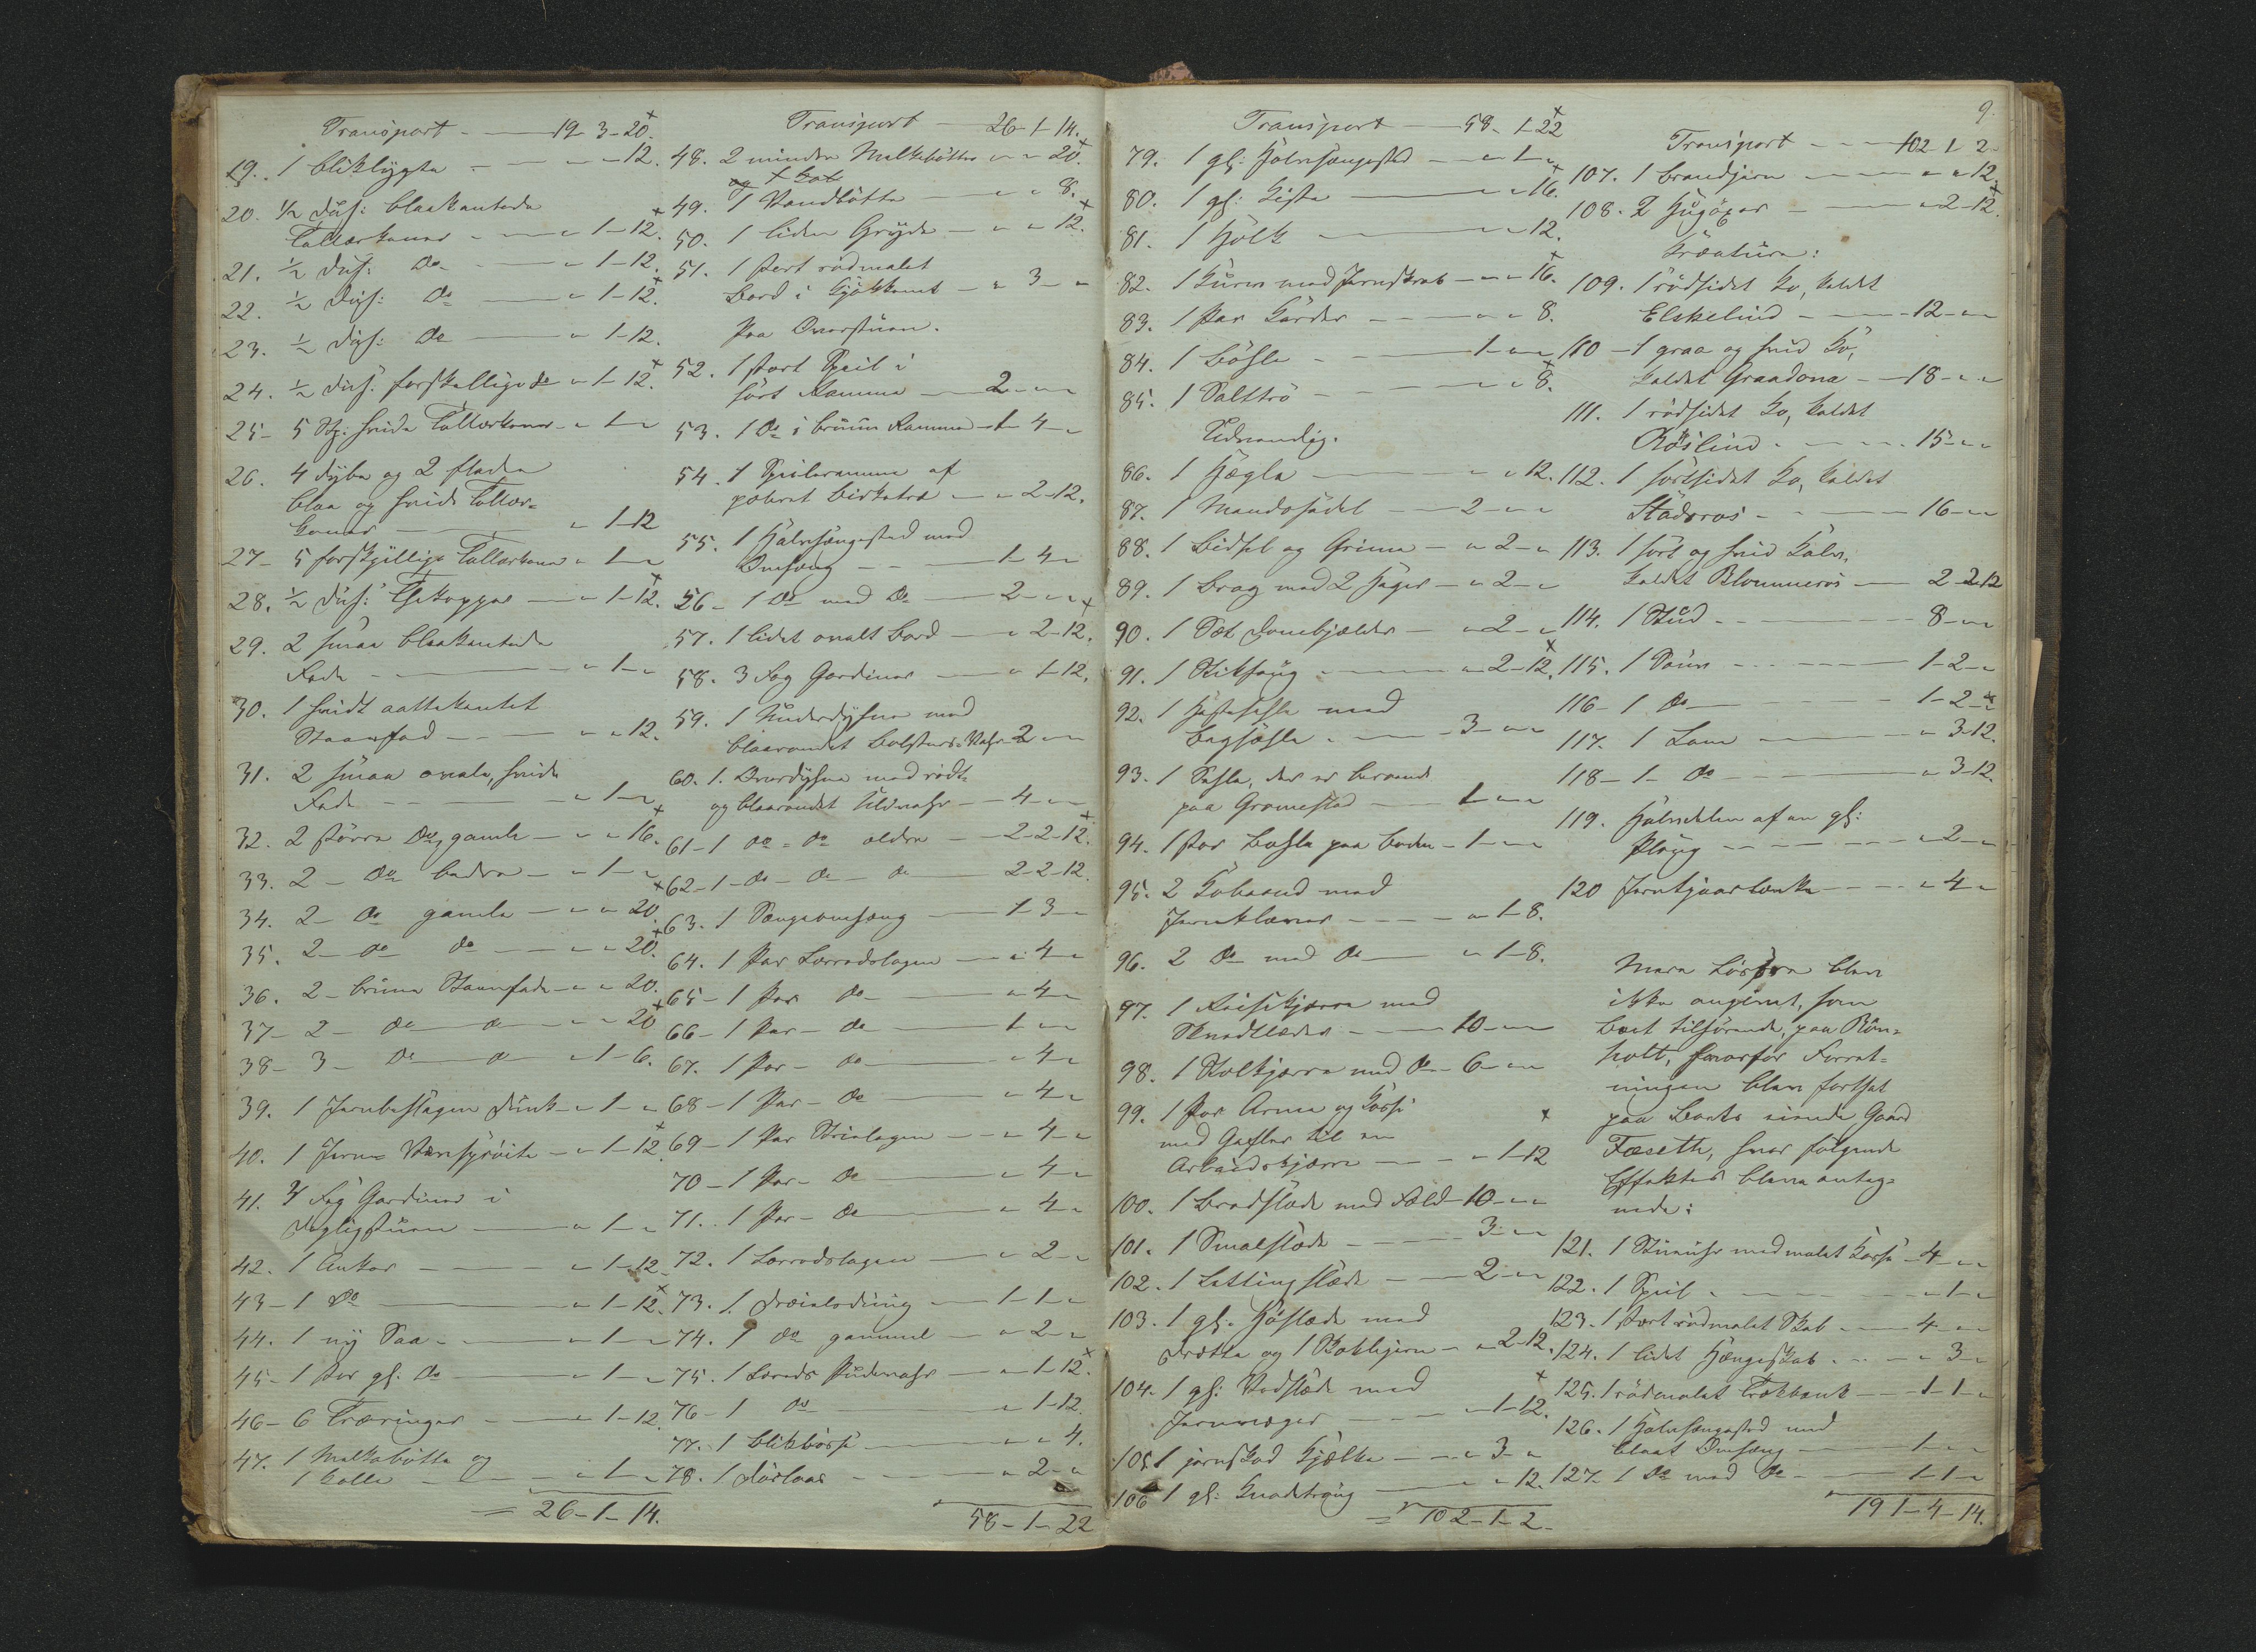 Transport - 19-3-20.
19. 1 bliklygte - " - " - 12.
20. 1/2 Dus: blaakantede
Tallerkener - " 1-12.
21. 1/2 Dus: Do - " 1-12.
22. 1/2 Dus: Do - " 1-12.
23. 1/2 Dus: Do - " 1-12.
24. 1/2 Dus: forskellige do - " 1-12.
25- 5 Stk: hvide Tallerkener - " 1-"
26. 4 dybe og 2 flade
blaa og hvide Taller-
kener - " 1-12
27- 5 forskjellige Tallerkener " 1-"
28. 1/2 Dus: Thekopper - " 1-12.
29. 2 smaa blaakantede
Fade - " 1-"
30. 1 hvidt aattekantet
Steenfad - " " 12.
31. 2 smaa ovale, hvide
Fade - " 1-"
32. 2 større Do, gamle - " " 16.
33. 2 - Do bedre - " 1-"
34. 2- Do gamle - " " 20.
35. 2- Do do - " " 20.
36. 2- brune Steenfade - " " 20.
37- 2- do do - " " 20
38- 3- Do do " 1-6.
39. 1 Jernbeslagen Dunk - " 1-"
40. 1 Jern- - " 1-12
41. 4 Fag Gardiner i
Dagligstuen - " 1-"
42. 1 Anker - " 1-12
43- 1 Do - " 1-12.
44. 1 ny Saa - " 1-"
45- 1 Par gl: do - " 1-"
46- 6 Træringer - " 1-12
47. 1 Melkebøtte og
1 Kolle - " 1-"
= 26-1-14.
Transport 26-1-14.
48. 2 mindre Melkebøtter " " 20.
og 1 Kob
49. 1 Vandbøtte - " " 8.
50. 1 liden Gryde - " " 12.
51. 1 stort rødmalet
Bord i Kjøkkenet - " 3-"
Paa Overstuen.
52. 1 stort Speil i
sort Ramme - 2-"-"
53. 1 Do i bruun Ramme - 1-4-"
54. 1 Speilramme af
poleret Birketræ - " 2-12.
55. 1 Halvsengested med
Omhæng - 1-4-"
56- 1 Do med Do - 2-"-"
57. 1 lidet ovalt Bord - " 2-12.
58. 3 Fag Gardiner - " 1-12.
59. 1 Underdyne med
blaarandet Bolster-Vahr 2-"-"
60. 1. Overdyne med rødt-
og blaarandet Uldvahr - 4-"-"
61- 1 do - do ældre - 2-2-12.
62- 1- do - do - do 2-2-12.
63. 1 Sengeomhæng - 1-3-"
64. 1 Par Lærredslagen - " 4-"
65- 1 Par do - " 4-"
66- 1 Par- do - 1-"-"
67. 1 Par- do - " 4-"
68- 1 Par- do - " 4-"
69- 1 Par Strielagen - " 4-"
70- 1 Par- do - " 4-"
71. 1 Par- do - " 4-"
72. 1 Lærredslagen - " 2-"
73. 1. Dreielsdug - 1-1-"
74. 1 do gammel - " 2-"
75. 1 Lerreds Pudevahr - " 1-12.
76- 1 do - " 1-12.
77. 1 blikbøsse - " " 4.
78. 1 Dørlaas - " 2-"
58-1-22
9.
Transport - 58-1-22
79. 1 gl: Halvsengested - " 1-"
80. 1 gl: Kiste - " " 16.
81. 1 Hølk - " " 12.
82. 1 Kurv med - " " 16.
83. 1 Par Karder - " " 8.
84. 1 Bøsle - 1-"-"
85. 1 Salttrø - " " 8.
Udvendig.
86. 1 Hegle - " " 12.
87. 1 Mandssadel - 2-"-"
88. 1 Bidsel og Grime - " 2-"
89. 1 brag med 2 Hager - " 2-"
90. 1 Sæt Dombjælder - " 2-"
91. 1 Stiksaug - " 2-12.
92. 1 Hestesæle med
bagsæle - 3-"-"
93. 1 Sæle, der er beroende
paa Gromestad - 1-"-"
94. 1 Par Bøsle paa Boden - 1-"-"
95. 2 Kobaand med
Jernklaver - " 1-8.
96. 2 Do med do - " 1-8.
97. 1 Reisekjærre med
Skvætlæder - 10-"-"
98. 1 Stolkjærre med do 6-"-"
99. 1 Par Arme og Kasse
med Gafler til en
Arbeidskjærre - " 1-12
100. 1 Bredslæde med Feld 10-"-"
101. 1 Smalslæde - 3-"-"
102. 1 Lettingslæde - 2-"-"
103. 1 gl. Høslæde med
Drætte og 1 Bakkejern - " 2-12.
104. 1 gl: Vedslæde med
Jernmeger - " 1-12.
105. 1 jernskod Kjælke - " 3-"
106 1 gl: Knadetrøug " " 12.
= 102-1-2-
Transport - 102-1-2.
107. 1 Brandjern - " " 12.
108. 2 Hugøxer - " 2-12.
Kreature:
109. 1 rødsidet Ko, kaldet
Elskelind - 12-"-"
110 - 1 graa og hvid Ko,
kaldet Graadona - 18-"-"
111. 1 rødsidet Ko, kaldet
Røslind - 15-"-"
112. 1 sortsidet Ko, kaldet
Stadsros - 16-"-"
113. 1 sort og hvid Kalv,
kaldet Blommeros - 2-2-12
114. 1 Stud - 8-"-"
115. 1 Souv - 1-2-"
116- 1 do - 1-2-"
117. 1 Lam - " 3-12.
118- 1- do - " 3-12.
119. Halvdelen af en gl:
Ploug - " 2-"
120 Jerntjoerlænke - " 4-"
Mere Løsøre blev
ikke angivet, som
Boet tilhørende, paa Røn-
holt, hvorfor Forret-
ningen blev fortsat
paa Boets eiende Gaard
Fæseth, hvor følgende
Effekter bleve anteg-
nede:
121. 1 Stueuhr med malet Kasse - 4-"-"
122. 1 Speil - " 1-"
123. 1 stort rødmalet Skab - 4-"-"
124. 1 lidet Hængeskab - " 3-"
125. 1 rødmalet Trækbænk - 1-1-"
126. 1 Halvsengested med
blaat Omhæng - 1-"-"
127. 1 Do med do - 1-1-"
191-4-14.